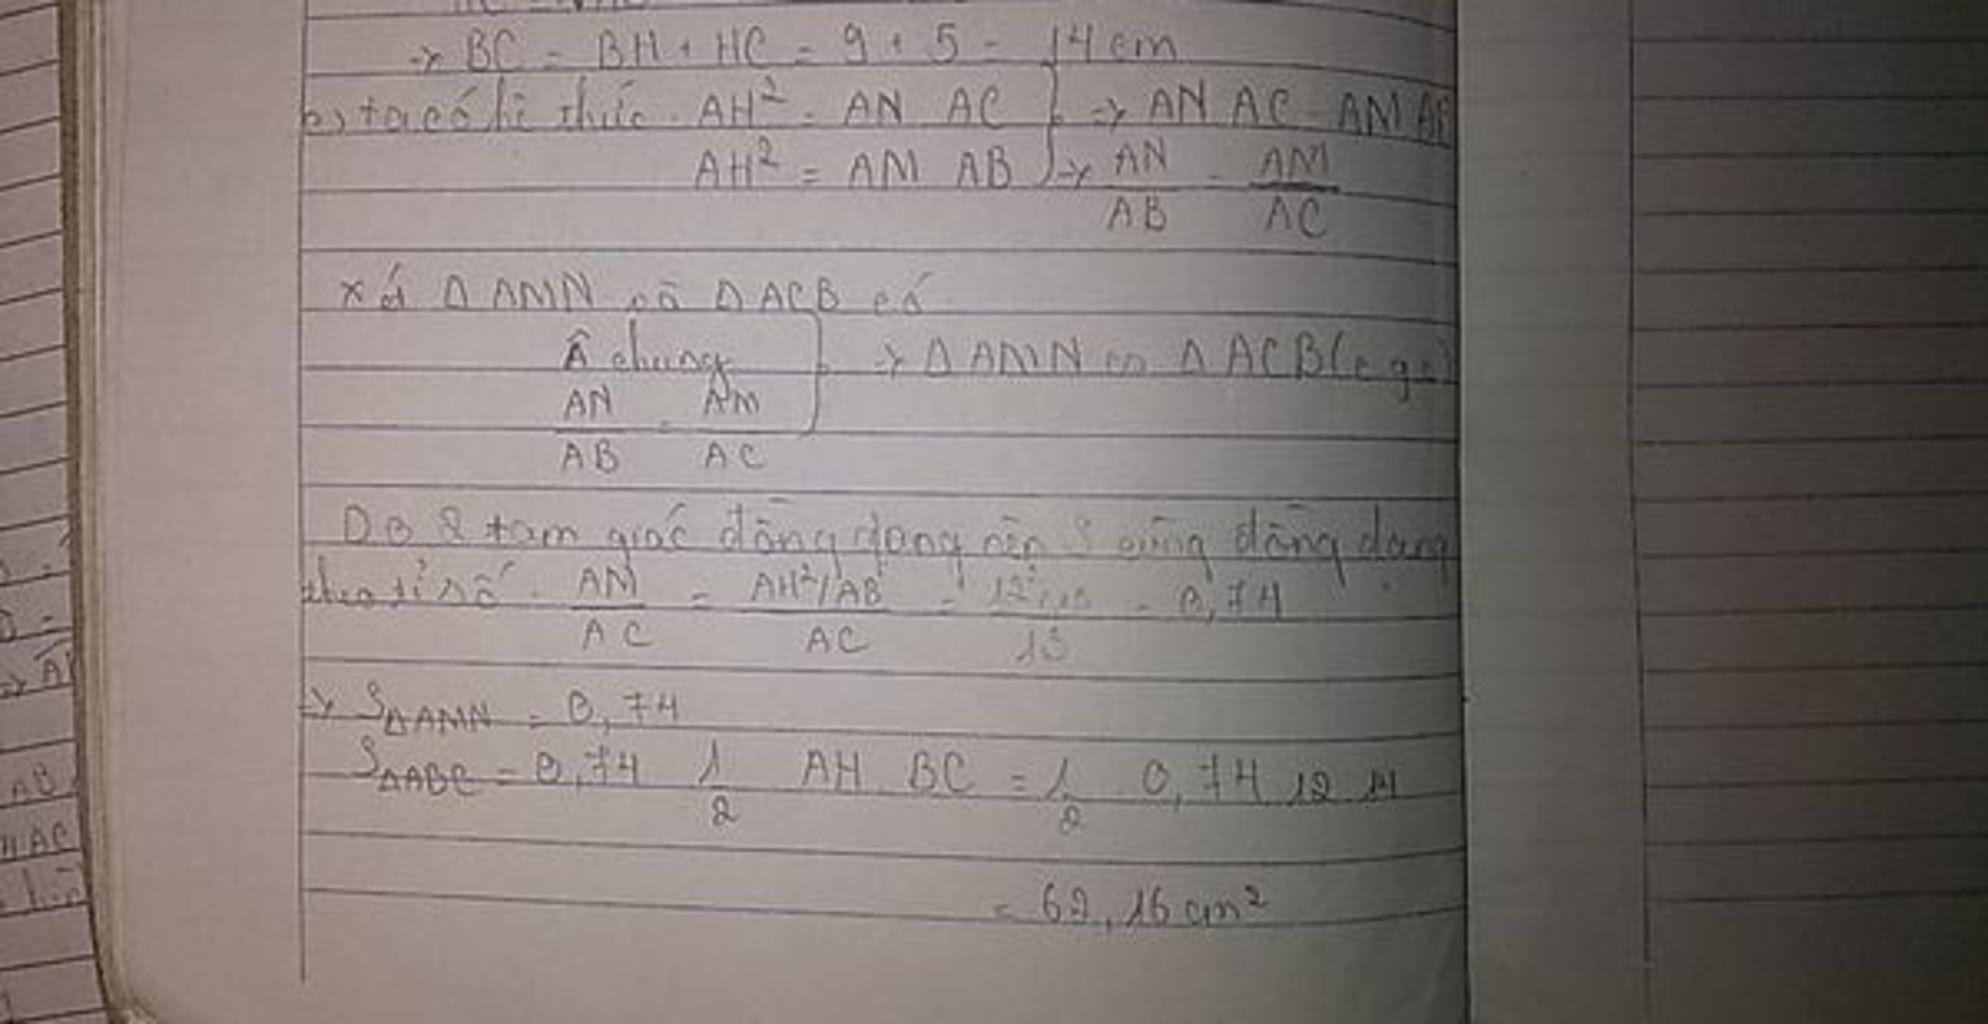 → BC = BH + HC = 9 + 5 = 14 cm
b, ta có hệ thức. AH² = AN AC } ⇒ AN AC = AM AB
AH² = AM AB } → AN/AB = AM/AC
xét Δ AMN và Δ ACB có
Â chung } → Δ AMN ∽ Δ ACB (c g c)
AN/AB = AM/AC
Do 2 tam giác đồng dạng nên S cũng đồng dạng
theo tỉ số. AM/AC = AH²/AB / AC = 12²:15 / 13 = 0,74
→ SΔAMN = 0,74
SΔABC = 0,74 1/2 AH. BC = 1/2 0,74 12 14
= 62,16 cm²